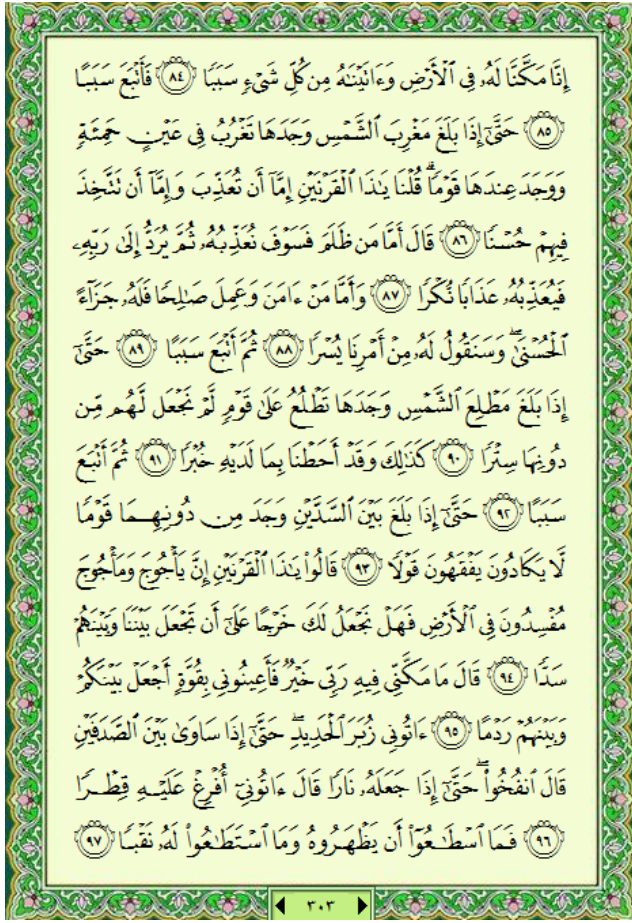 إِنَّا مَكَّنَّا لَهُۥ فِى ٱلْأَرْضِ وَءَاتَيْنَٰهُ مِن كُلِّ شَىْءٍ سَبَبًا ٨٤ فَأَتْبَعَ سَبَبًا
٨٥ حَتَّىٰٓ إِذَا بَلَغَ مَغْرِبَ ٱلشَّمْسِ وَجَدَهَا تَغْرُبُ فِى عَيْنٍ حَمِئَةٍ
وَوَجَدَ عِندَهَا قَوْمًا ۗ قُلْنَا يَٰذَا ٱلْقَرْنَيْنِ إِمَّآ أَن تُعَذِّبَ وَإِمَّآ أَن تَتَّخِذَ
فِيهِمْ حُسْنًا ٨٦ قَالَ أَمَّا مَن ظَلَمَ فَسَوْفَ نُعَذِّبُهُۥ ثُمَّ يُرَدُّ إِلَىٰ رَبِّهِۦ
فَيُعَذِّبُهُۥ عَذَابًا نُّكْرًا ٨٧ وَأَمَّا مَنْ ءَامَنَ وَعَمِلَ صَٰلِحًا فَلَهُۥ جَزَآءً
ٱلْحُسْنَىٰ ۖ وَسَنَقُولُ لَهُۥ مِنْ أَمْرِنَا يُسْرًا ٨٨ ثُمَّ أَتْبَعَ سَبَبًا ٨٩ حَتَّىٰٓ
إِذَا بَلَغَ مَطْلِعَ ٱلشَّمْسِ وَجَدَهَا تَطْلُعُ عَلَىٰ قَوْمٍ لَّمْ نَجْعَل لَّهُم مِّن
دُونِهَا سِتْرًا ٩٠ كَذَٰلِكَ وَقَدْ أَحَطْنَا بِمَا لَدَيْهِ خُبْرًا ٩١ ثُمَّ أَتْبَعَ
سَبَبًا ٩٢ حَتَّىٰٓ إِذَا بَلَغَ بَيْنَ ٱلسَّدَّيْنِ وَجَدَ مِن دُونِهِمَا قَوْمًا
لَّا يَكَادُونَ يَفْقَهُونَ قَوْلًا ٩٣ قَالُوا۟ يَٰذَا ٱلْقَرْنَيْنِ إِنَّ يَأْجُوجَ وَمَأْجُوجَ
مُفْسِدُونَ فِى ٱلْأَرْضِ فَهَلْ نَجْعَلُ لَكَ خَرْجًا عَلَىٰٓ أَن تَجْعَلَ بَيْنَنَا وَبَيْنَهُمْ
سَدًّا ٩٤ قَالَ مَا مَكَّنِّى فِيهِ رَبِّى خَيْرٌ فَأَعِينُونِى بِقُوَّةٍ أَجْعَلْ بَيْنَكُمْ
وَبَيْنَهُمْ رَدْمًا ٩٥ ءَاتُونِى زُبَرَ ٱلْحَدِيدِ ۖ حَتَّىٰٓ إِذَا سَاوَىٰ بَيْنَ ٱلصَّدَفَيْنِ
قَالَ ٱنفُخُوا۟ ۖ حَتَّىٰٓ إِذَا جَعَلَهُۥ نَارًا قَالَ ءَاتُونِىٓ أُفْرِغْ عَلَيْهِ قِطْرًا
٩٦ فَمَا ٱسْطَٰعُوٓا۟ أَن يَظْهَرُوهُ وَمَا ٱسْتَطَٰعُوا۟ لَهُۥ نَقْبًا ٩٧
٣٠٣